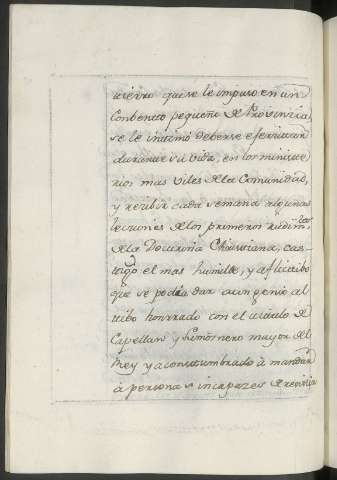 tierro que se le impuso en un
Conbento pequeño de Provinzia,
se le intimó deberse exercitar
durante su vida, en los ministe
rios mas viles de la Comunidad,
y recibir cada semana algunas
lecciones de los primeros rudim.tos
de la Doctrina Christiana, cas-
tigo el mas humilde, y aflictibo
que se podia dar a un genio al
tibo honrrado con el titulo de
Capellan y Limosnero mayor del
Rey y aconstumbrado à mandar
à personas incapazes de